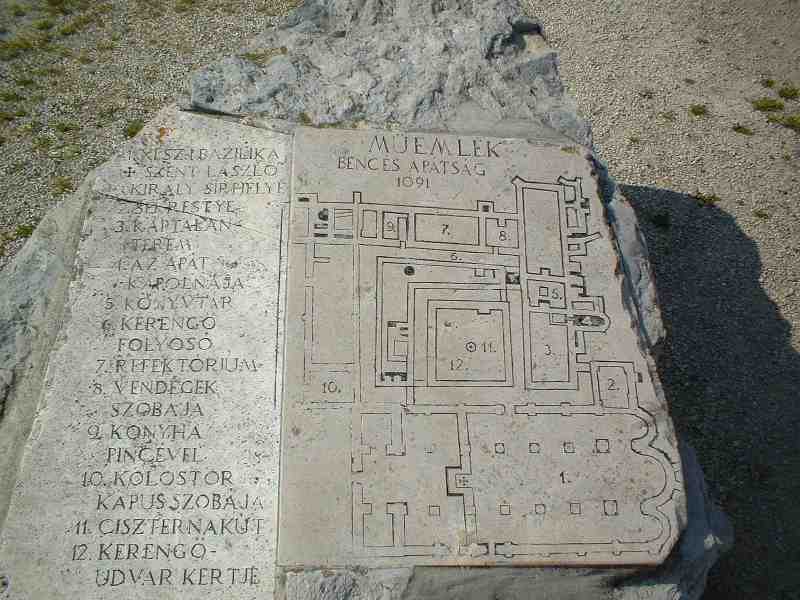 1. RÉSZI BAZILIKA
✠ SZENT LÁSZLÓ
KIRÁLY SÍRHELYE
2. SEKRESTYE
3. KÁPTALAN-
TEREM
4. AZ APÁT
KÁPOLNÁJA
5. KÖNYVTÁR
6. KERENGŐ
FOLYOSÓ
7. REFEKTÓRIUM
8. VENDÉGEK
SZOBÁJA
9. KONYHA
PINCÉVEL
10. KOLOSTOR
KAPUS SZOBÁJA
11. CISZTERNAKÚT
12. KERENGŐ-
UDVAR KERTJE
MŰEMLÉK
BENCÉS APÁTSÁG
1091
9.
7.
8.
6.
5.
11.
3.
12.
2.
10.
1.